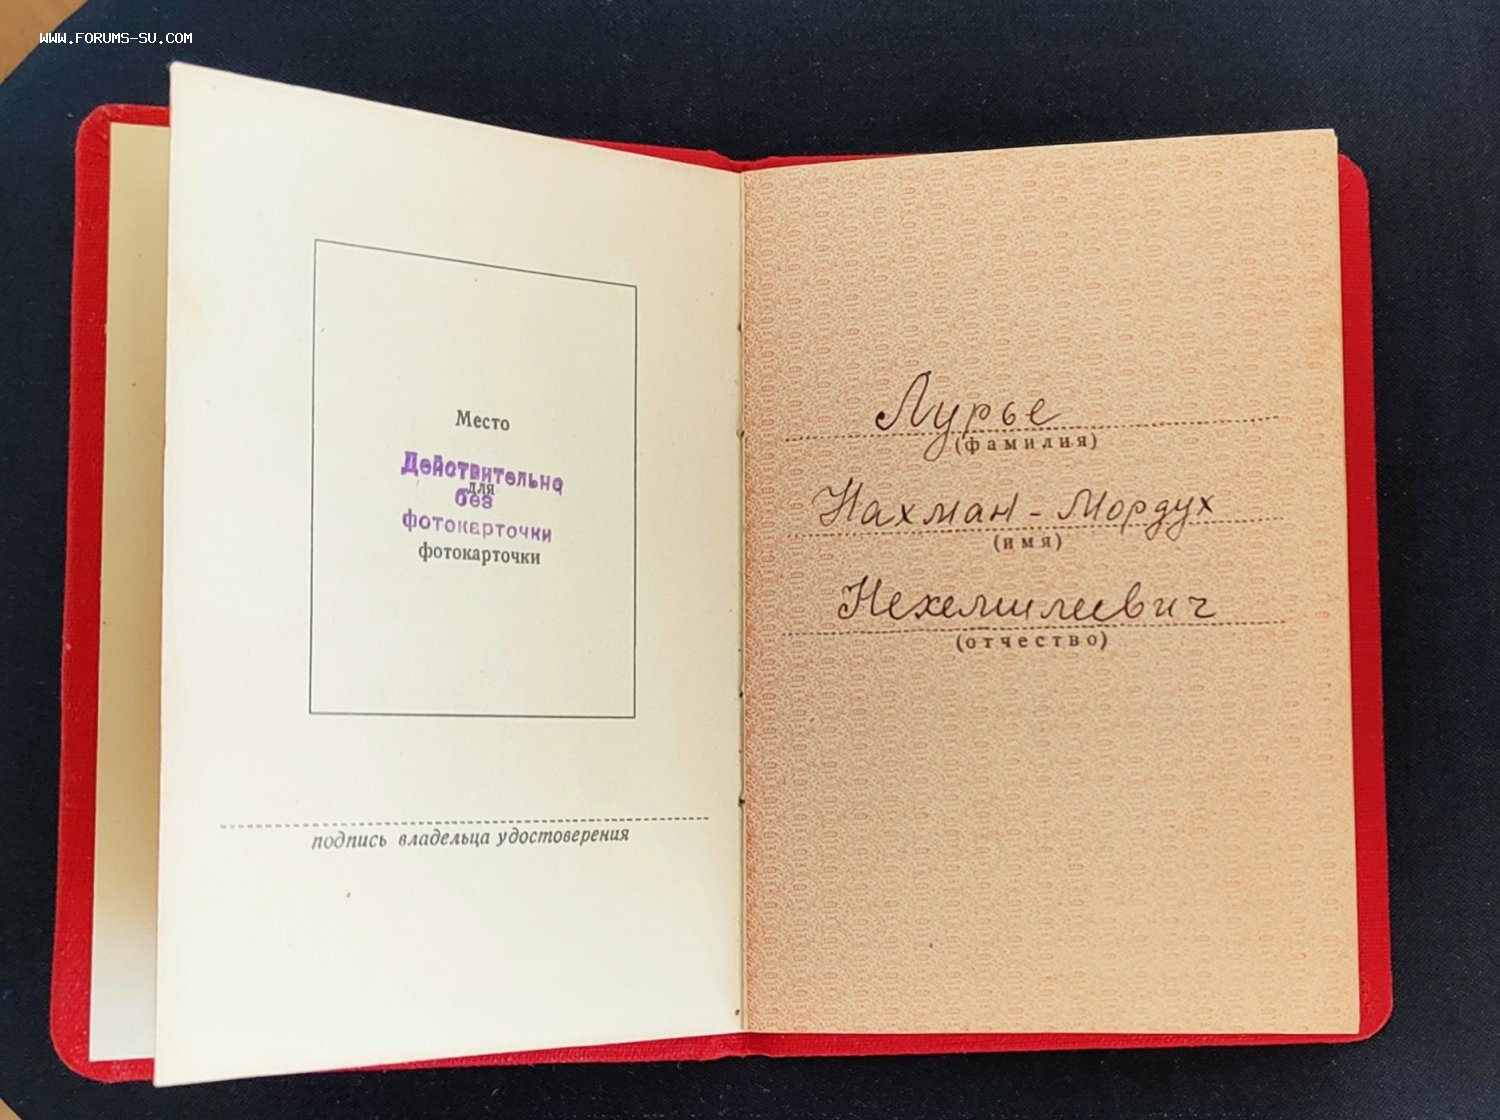 WWW.FORUMS-SU.COM
Место
Действительно
для
без
фотокарточки
фотокарточки
подпись владельца удостоверения
Лурье
(фамилия)
Нахман-Мордух
(имя)
Нехемилеевич
(отчество)